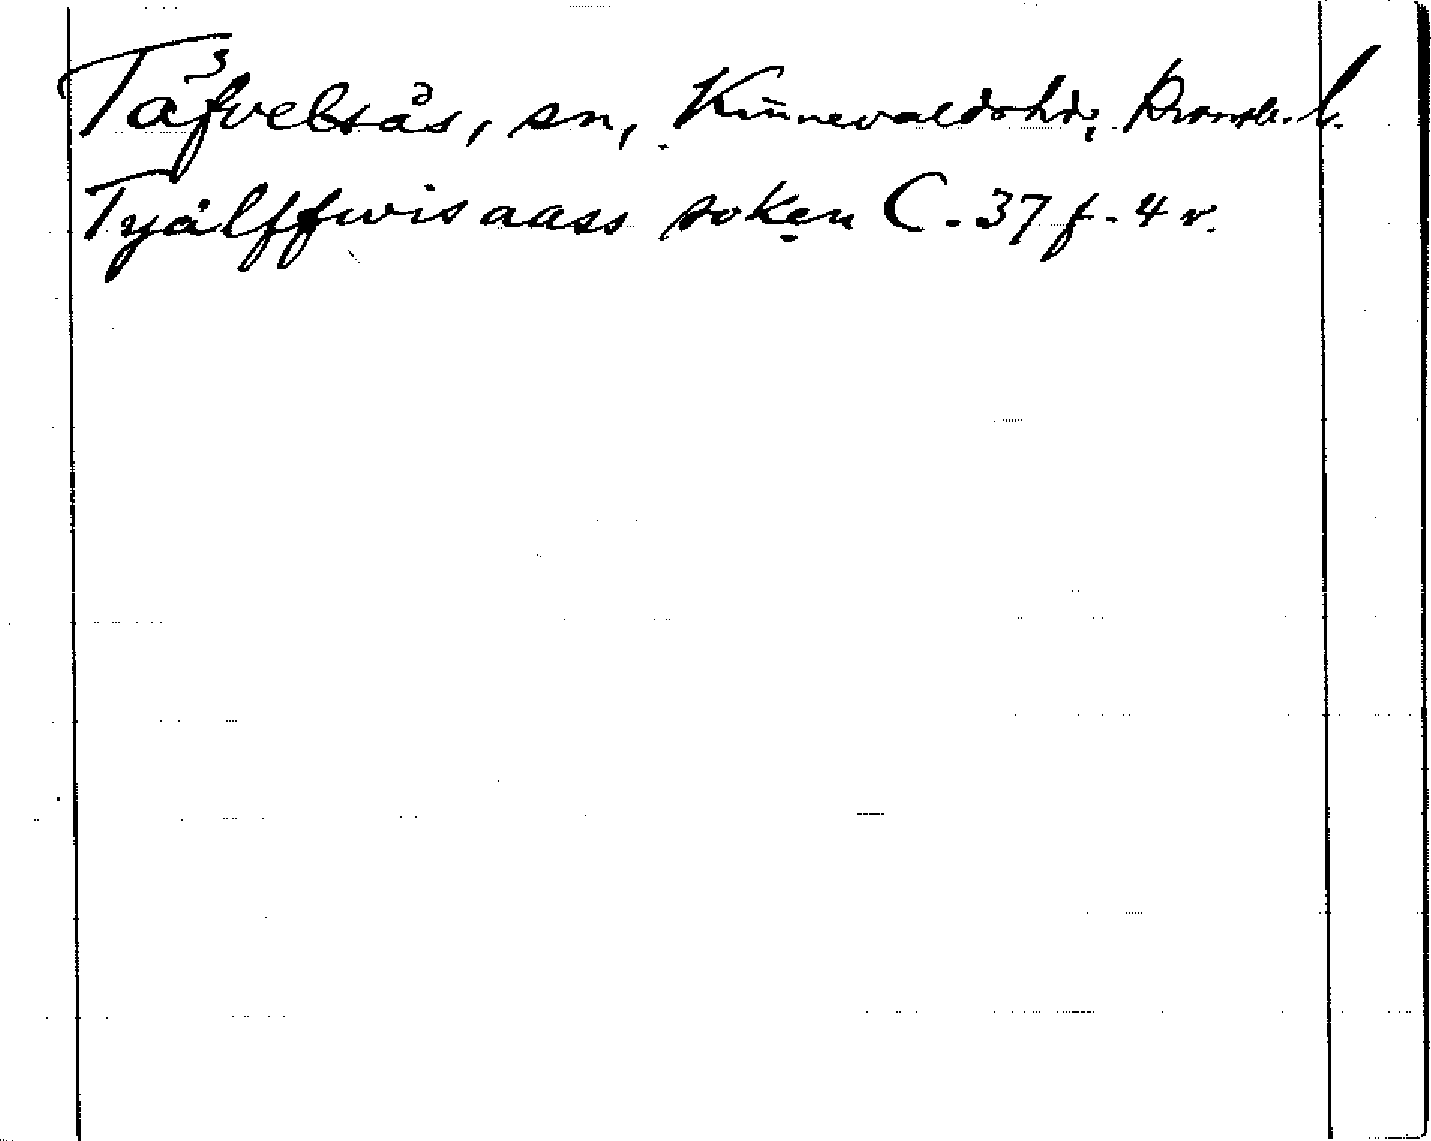 Täfvelsås, sn, Kinnevalds hd, Kronob. l.
Tyälffwis aass soken C. 37 f. 4 v.